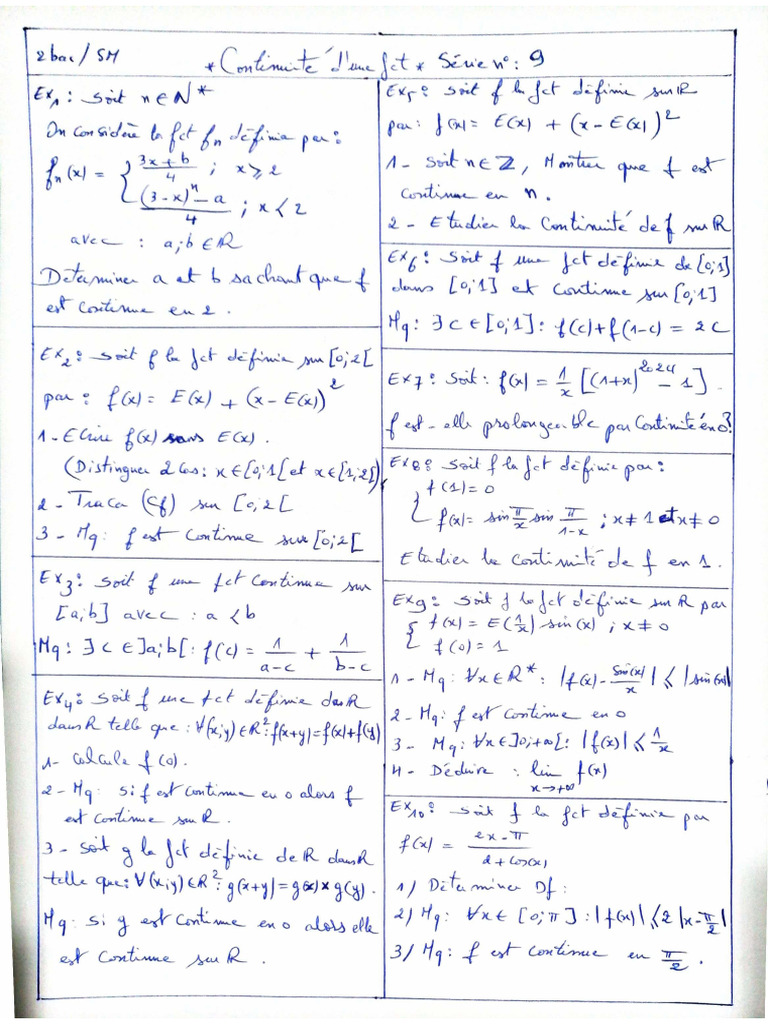 2 bac / SM
* Continuité d'une fct * Série n°: 9
Ex1: Soit n ∈ N*
On considère la fct fn définie par :
fn(x) = { (3x + b)/4 ; x ⩾ 2
((3 - x)^n - a)/4 ; x < 2
avec : a;b ∈ R
Déterminer a et b sachant que f
est continue en 2.
Ex2: soit f la fct définie sur [0;2[
par : f(x) = E(x) + (x - E(x))^2
1 - Ecrire f(x) sans E(x).
(Distinguer 2 cas: x ∈ [0;1[ et x ∈ [1;2[)
2 - Tracer (Cf) sur [0;2[
3 - Mq: f est continue sur [0;2[
Ex3: soit f une fct continue sur
[a;b] avec : a < b
Mq: ∃ c ∈ ]a;b[ : f(c) = 1/(a-c) + 1/(b-c)
Ex4: soit f une fct définie de R
dans R telle que : ∀(x;y) ∈ R²: f(x+y) = f(x)+f(y)
1 - calculer f(0).
2 - Mq: si f est continue en 0 alors f
est continue sur R.
3 - soit g la fct définie de R dans R
telle que: ∀(x;y) ∈ R²: g(x+y) = g(x) × g(y).
Mq: si g est continue en 0 alors elle
est continue sur R.
Ex5: soit f la fct définie sur R
par: f(x) = E(x) + (x - E(x))^2
1 - soit n ∈ Z, Montrer que f est
continue en n.
2 - Etudier la continuité de f sur R
Ex6: soit f une fct définie de [0;1]
dans [0;1] et continue sur [0;1]
Mq: ∃ c ∈ [0;1] : f(c) + f(1-c) = 2c
Ex7: Soit : f(x) = 1/x [(1+x)^2024 - 1].
f est-elle prolongeable par continuité en 0?
Ex8: soit f la fct définie par:
{ f(1) = 0
f(x) = sin π/x sin π/(1-x) ; x ≠ 1 et x ≠ 0
Etudier la continuité de f en 1.
Ex9: soit f la fct définie sur R par
{ f(x) = E(1/x) sin(x) ; x ≠ 0
f(0) = 1
1 - Mq: ∀x ∈ R* : |f(x) - sin(x)/x| ⩽ |sin(x)|
2 - Mq: f est continue en 0
3 - Mq: ∀x ∈ ]0;+∞[ : |f(x)| ⩽ 1/x
4 - Déduire : lim f(x)
x→+∞
Ex10: soit f la fct définie par
f(x) = (2x - π)/(2 + cos(x))
1) Déterminer Df:
2) Mq: ∀x ∈ [0;π] : |f(x)| ⩽ 2 |x - π/2|
3) Mq: f est continue en π/2.